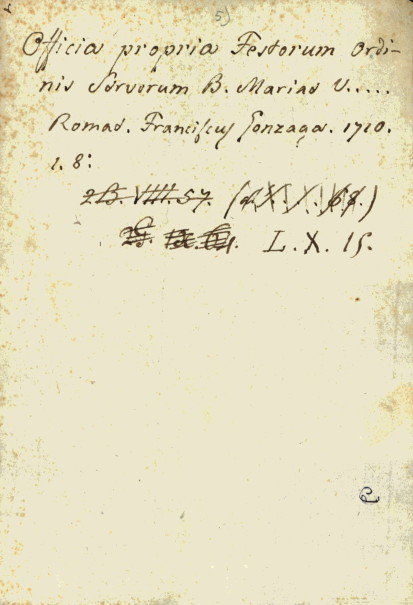 5)
Officia propria Festorum Ordi-
nis Servorum B. Mariae V.....
Romae. Franciscus Gonzaga. 1710.
1. 8°.
2B. VIIII. 57.
L. X. 15.